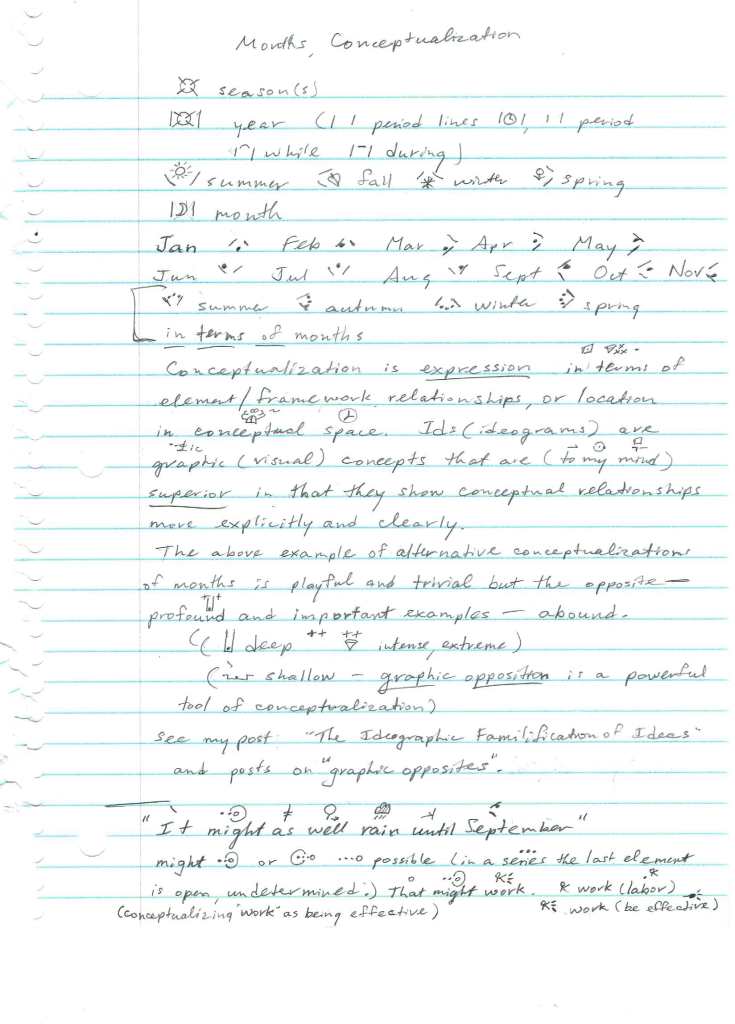 Months, Conceptualization
season(s)
year (| | period lines, | | period
while during)
summer fall winter spring
month
Jan Feb Mar Apr May
Jun Jul Aug Sept Oct Nov
summer autumn winter spring
in terms of months
Conceptualization is expression in terms of
element/framework relationships, or location
in conceptual space. Ids (ideograms) are
-tic
graphic (visual) concepts that are (to my mind)
superior in that they show conceptual relationships
more explicitly and clearly.
The above example of alternative conceptualizations
of months is playful and trivial but the opposite —
profound and important examples — abound.
(( deep ++ intense, extreme)
( shallow — graphic opposition is a powerful
tool of conceptualization)
See my post "The Ideographic Familification of Ideas"
and posts on "graphic opposites".
"It might as well rain until September"
might or possible (in a series the last element
is open, undetermined.) That might work. work (labor)
(conceptualizing "work" as being effective) work (be effective)